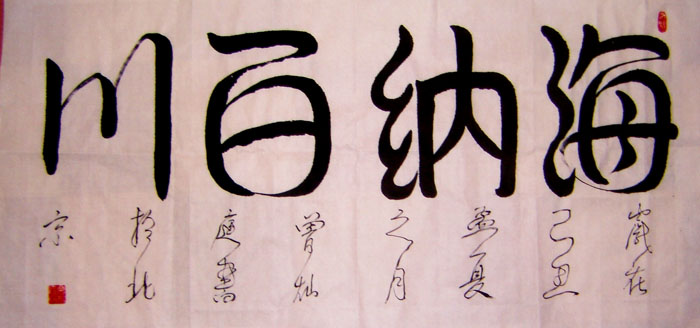 海纳百川
歲在
己丑
孟夏
之月
曾灿
庭書
於北
京